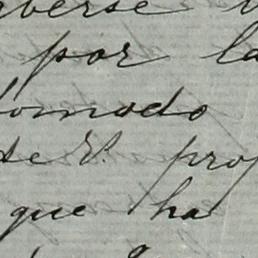 verse
por la
tomado
de V. prop
que ha